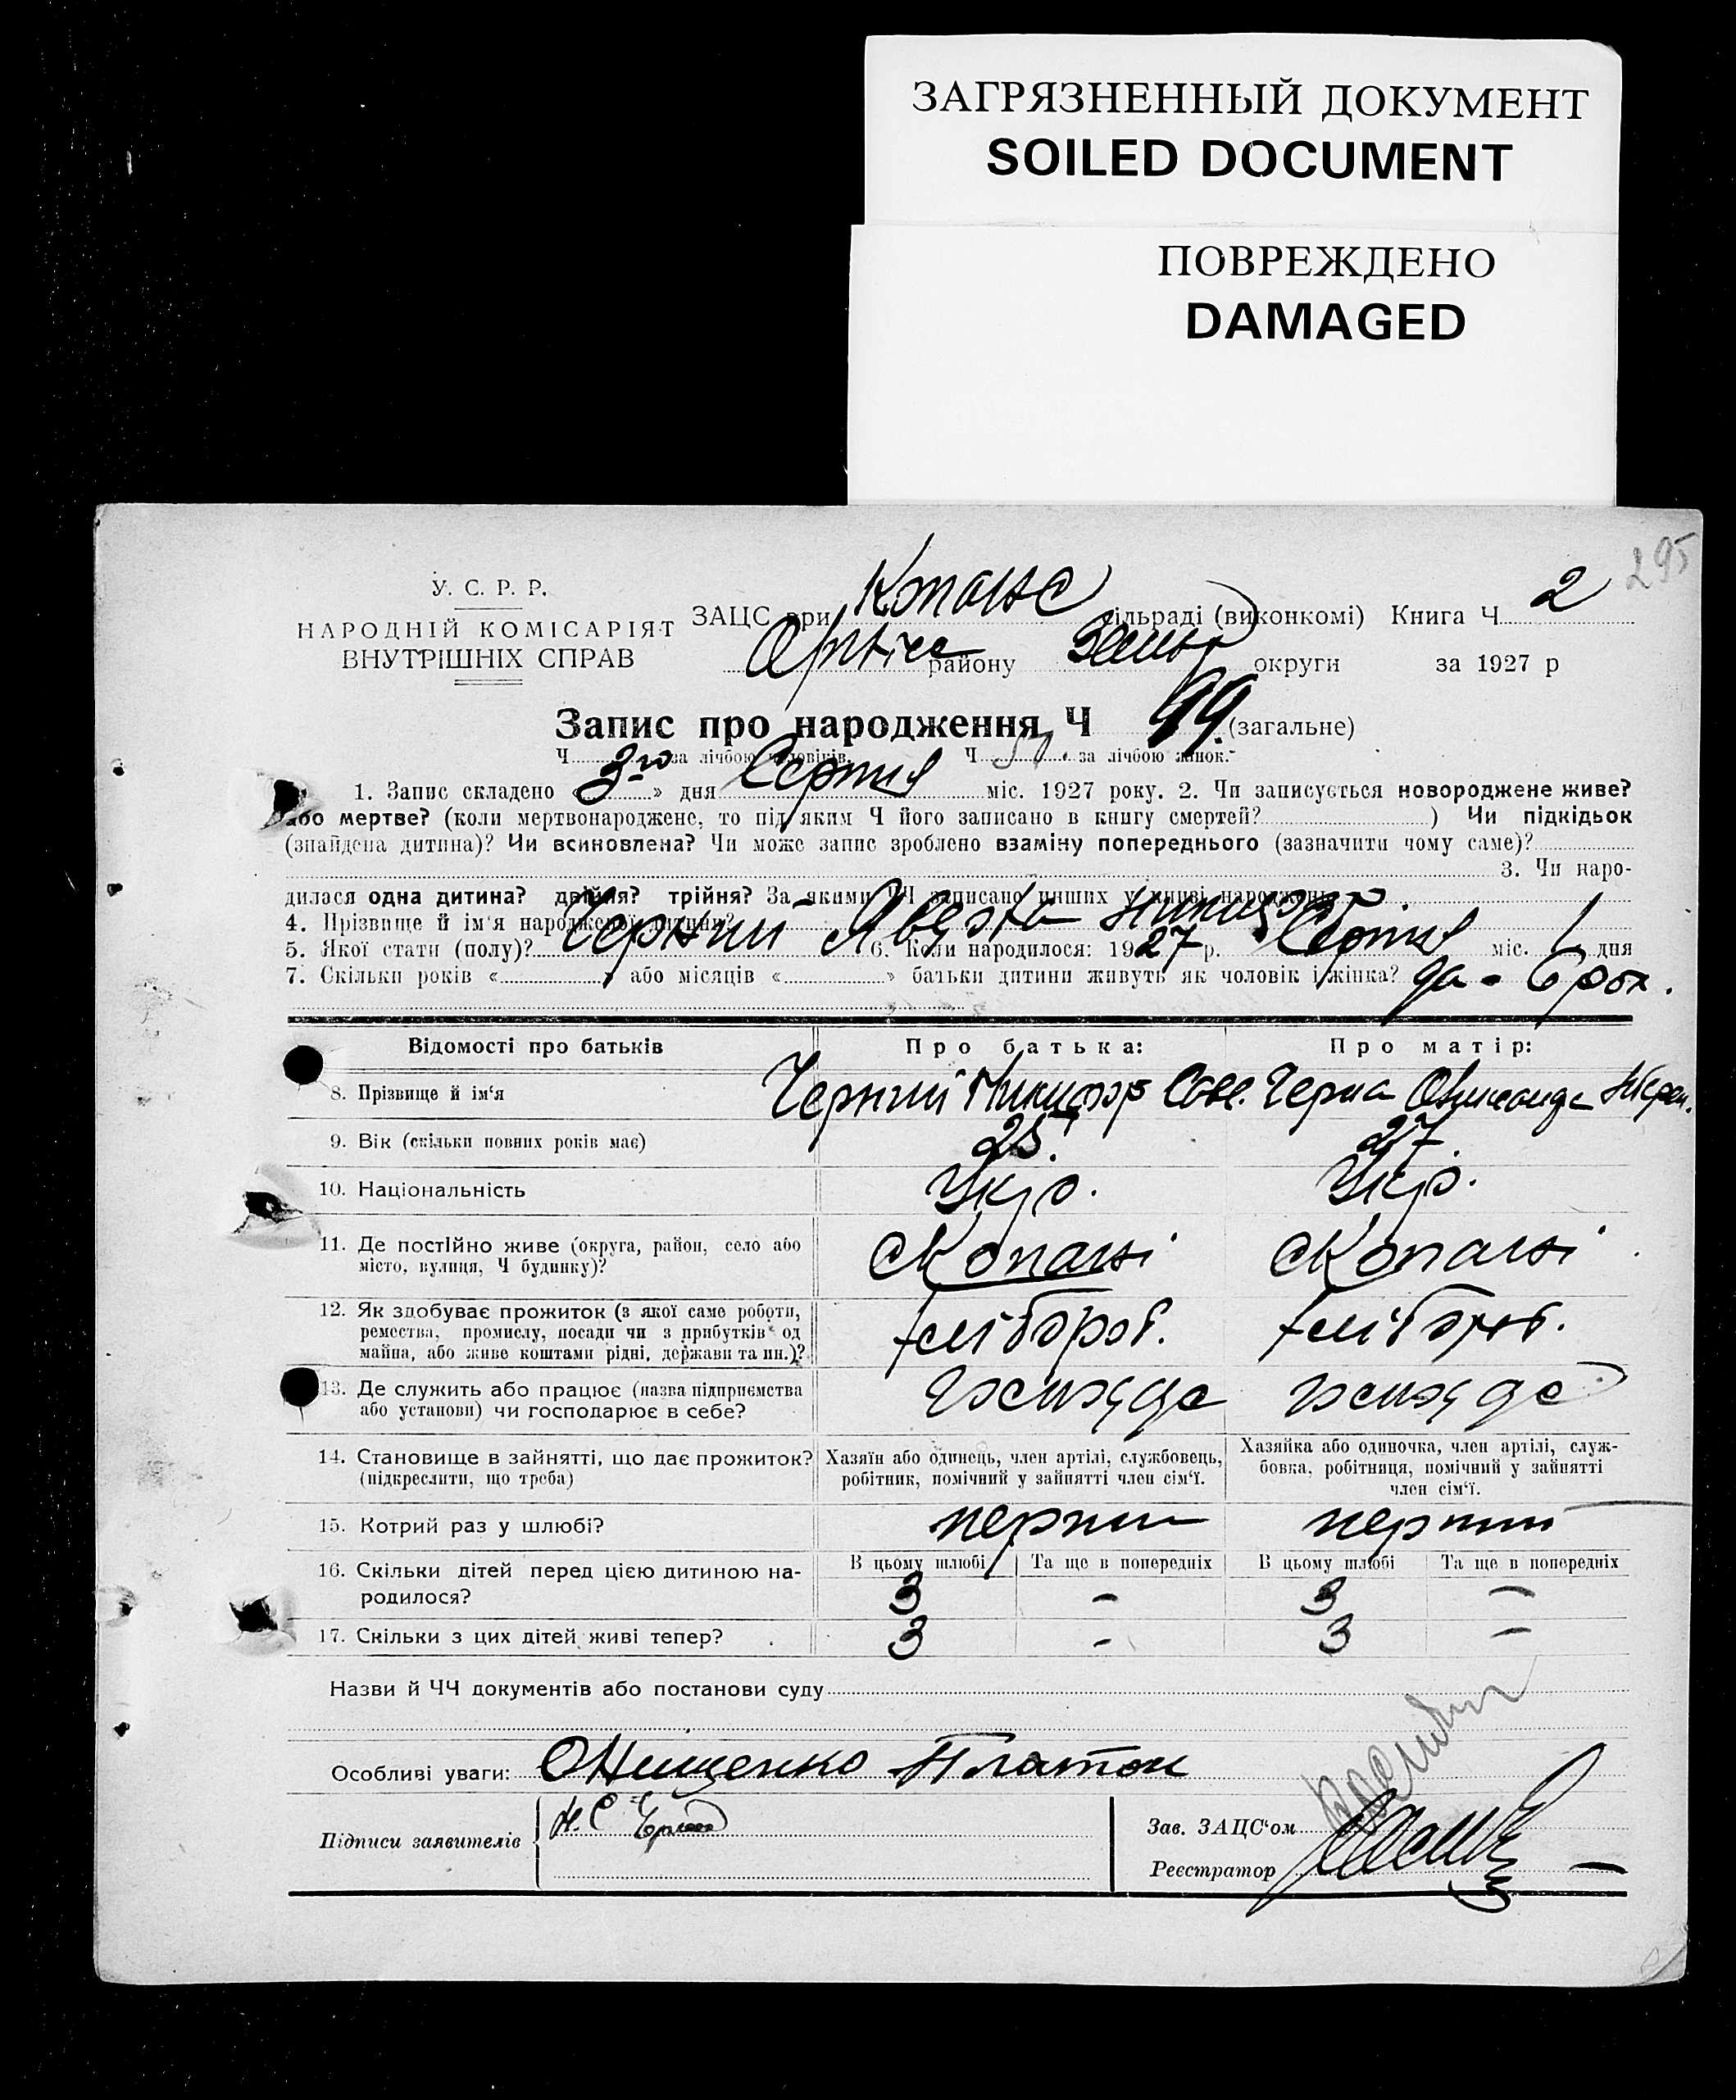 ЗАГРЯЗНЕННЫЙ ДОКУМЕНТ
SOILED DOCUMENT
ПОВРЕЖДЕНО
DAMAGED
295
У. С. Р. Р.
НАРОДНІЙ КОМІСАРІЯТ
ВНУТРІШНІХ СПРАВ
ЗАЦС при сільраді (виконкомі) Книга Ч. 2
району округи за 1927 р
Запис про народження Ч 99. (загальне)
Ч за лічбою чоловіків. Ч за лічбою жінок.
1. Запис складено « 3го » дня Серпня міс. 1927 року. 2. Чи записується новороджене живе?
або мертве? (коли мертвонароджене, то під яким Ч його записано в книгу смертей? ) Чи підкідьок
(знайдена дитина)? Чи всиновлена? Чи може запис зроблено взаміну попереднього (зазначити чому саме)?
3. Чи наро-
дилася одна дитина? двійня? трійня? За якими ЧЧ записано инших у книзі народжень
4. Прізвище й ім'я народженої дитини? Черний
5. Якої стати (полу)? 6. Коли народилося: 1927 р. Серпня міс. 1 дня
7. Скільки років « » або місяців « » батьки дитини живуть як чоловік і жінка? да - 6 рок.
Відомості про батьків Про батька: Про матір:
8. Прізвище й ім'я Черний Никифор Сав. Черна
9. Вік (скільки повних років має) 25. 27.
10. Національність Укр. Укр.
11. Де постійно живе (округа, район, село або
місто, вулиця, Ч будинку)? с Копані с Копані
12. Як здобуває прожиток (з якої саме роботи,
ремества, промислу, посади чи з прибутків од
майна, або живе коштами рідні, держави та ин.)? хліборов. хліборов.
13. Де служить або працює (назва підприємства
або установи) чи господарює в себе?
14. Становище в зайнятті, що дає прожиток?
(підкреслити, що треба)
Хазяїн або одинець, член артілі, службовець,
робітник, помічний у зайнятті член сім'ї.
Хазяйка або одиночка, член артілі, служ-
бовка, робітниця, помічний у зайнятті
член сім'ї.
15. Котрий раз у шлюбі? перший перший
В цьому шлюбі Та ще в попередніх В цьому шлюбі Та ще в попередніх
16. Скільки дітей перед цією дитиною на-
родилося? 3 - 3 -
17. Скільки з цих дітей живі тепер? 3 - 3 -
Назви й ЧЧ документів або постанови суду
Особливі уваги: Онищенко Платон
Підписи заявителів
Зав. ЗАЦС'ом
Реєстратор